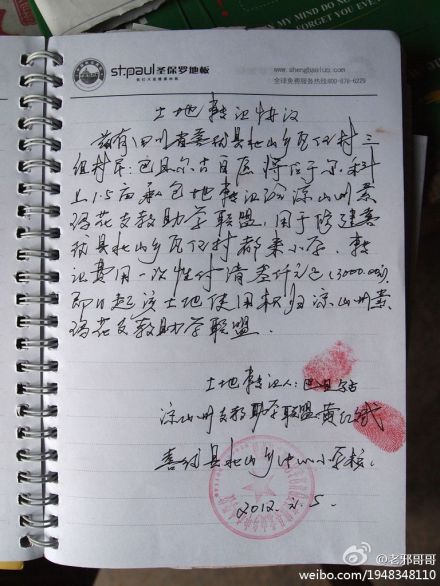 st.paul圣保罗地板
www.shengbaoluo.com
全球免费服务热线800-878-6229
土地转让协议
兹有四川省喜德县北山乡瓦伍村三
组村民:巴且尔古自愿将位于尔科
上1.5亩承包地转让给凉山州索
玛花支教助学联盟,用于修建喜
德县北山乡瓦伍村都来小学,转
让费用一次性付清叁仟元正(3000.00),
即日起该土地使用权归凉山州索
玛花支教助学联盟。
土地转让人:巴且尔古
凉山州支教助学联盟黄红斌
喜德县北山乡中心小学校.
2012.2.5.
@老邪哥哥
weibo.com/1948348110